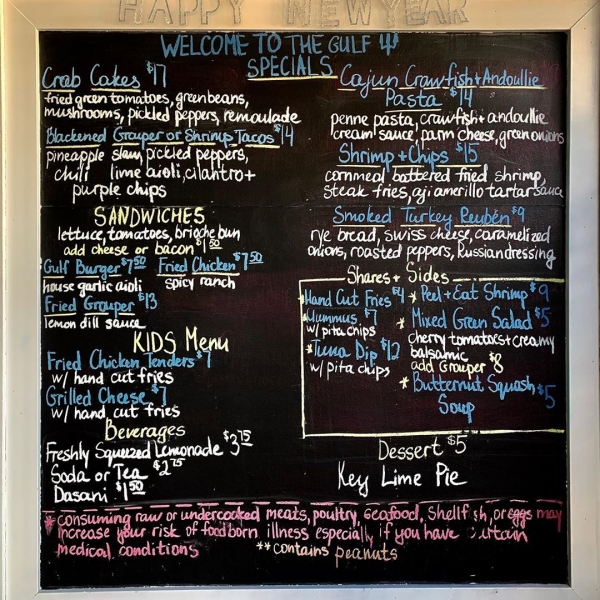 HAPPY NEW YEAR
WELCOME TO THE GULF
SPECIALS
Crab Cakes $17
fried green tomatoes, green beans,
mushrooms, pickled peppers, remoulade
Blackened Grouper or Shrimp Tacos $14
pineapple slaw, pickled peppers,
chili lime aioli, cilantro +
purple chips
Cajun Crawfish + Andoullie
Pasta $14
penne pasta, crawfish + andoullie
cream sauce, parm cheese, green onions
Shrimp + Chips $15
cornmeal battered fried shrimp,
steak fries, aji amerillo tartar sauce
Smoked Turkey Reuben $9
rye bread, swiss cheese, caramelized
onions, roasted peppers, Russian dressing
SANDWICHES
lettuce, tomatoes, brioche bun
add cheese or bacon $1.50
Gulf Burger $7.50
house garlic aioli
Fried Chicken $7.50
spicy ranch
Fried Grouper $13
lemon dill sauce
KIDS Menu
Fried Chicken Tenders $7
w/ hand cut fries
Grilled Cheese $7
w/ hand cut fries
Beverages
Freshly Squeezed Lemonade $3.75
Soda or Tea $2.75
Dasani $1.50
Shares + Sides
Hand Cut Fries $4
*Hummus $7
w/ pita chips
*Tuna Dip $12
w/ pita chips
* Peel + Eat Shrimp $9
* Mixed Green Salad $5
cherry tomatoes + creamy
balsamic
add Grouper $8
* Butternut Squash $5
Soup
Dessert $5
Key Lime Pie
* consuming raw or undercooked meats, poultry, seafood, shellfish, or eggs may
increase your risk of foodborn illness especially if you have certain
medical conditions
** contains peanuts